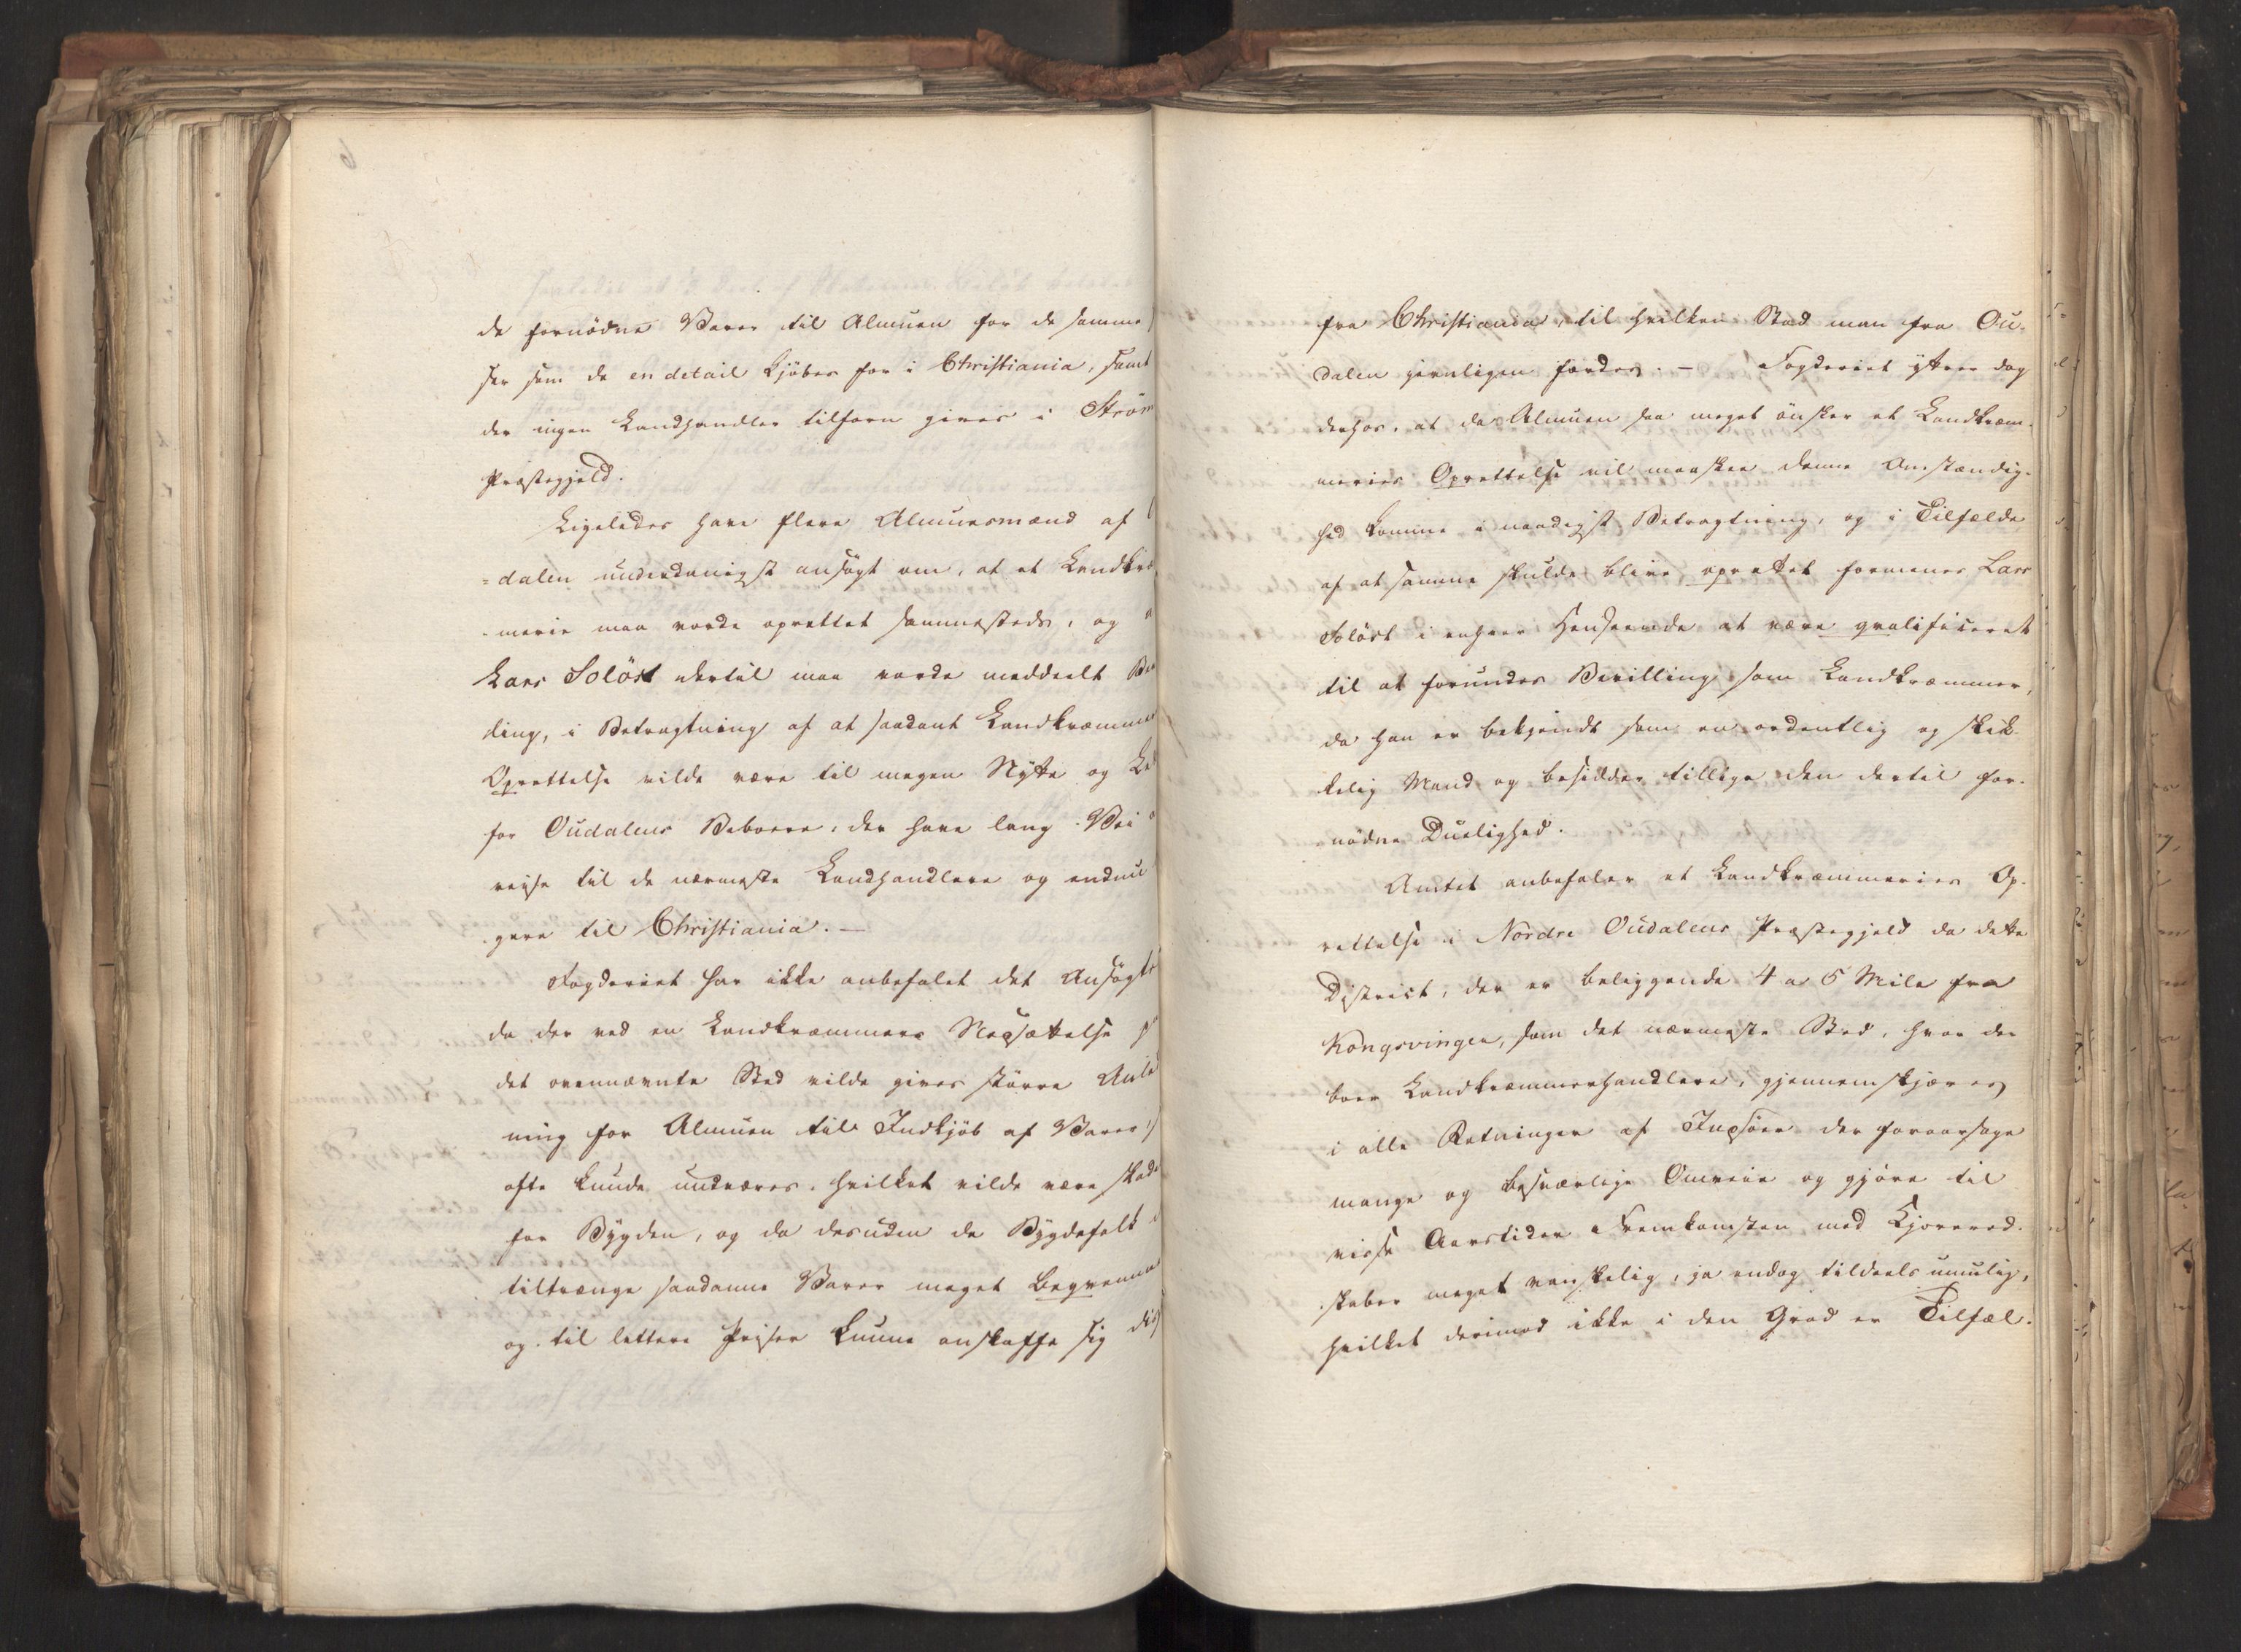 de fornödne Varer til Almuen for de samme
ser som de en detail kjöbes for i Christiania, samt
der ingen Landhandler tilforn gives i Ström
Præstegjeld.
Ligeledes have flere Almuesmænd af
=dalen underdanigst ansögt om, at et Landkræ
-merie maa vorde oprettet sammesteds, og
Lars Solöst dertil maa vorde meddeelt Be
ling, i Betragtning af at saadant Landkræmme
Oprettelse vilde være til megen Nytte og Le
for Oudalens Beboere, der have lang Vei
reise til de nærmeste Landhandlere og endnu
gere til Christiania. —
Fogderiet har ikke anbefalet det Ansögte
da der ved en Landkræmmers Nedsættelse p
det ovennævnte Sted vilde gives större Anled
ning for Almuen til Indkjöb af Varer
ofte kunde undværes, hvilket vilde være skade
for Bygden, og da desuden de Bygdefolk
tiltrænge saadanne Varer meget beqvemme
og til lettere Priser kunne anskaffe sig dis
fra Christiania, til hvilken Stad man fra Ou-
dalen jevnligen færdes. — Fogderiet yttrer dog
derhos, at da Almuen saa meget önsker et Landkræm-
meries Oprettelse vil maaskee denne Omstændig-
hed komme i naadigst Betragtning, og i Tilfælde
af at samme skulde blive oprettet formenes Lars
Solöst i enhver Henseende at være qvalificeret
til at forundes Bevilling som Landkræmmer,
da han er bekjendt som en ordentlig og skik-
kelig Mand og besidder tillige den dertil for-
nödne Duelighed.
Amtet anbefaler et Landkræmmeries Op-
rettelse i Nordre Oudalens Præstegjeld da dette
District, der er beliggende 4 a 5 Mile fra
Kongsvinger, som det nærmeste Sted, hvor der
boer Landkræmmerhandlere, gjennemskjæres
i alle Retninger af Indsöer der foraarsage
mange og besværlige Omveie og gjöre til
visse Aarstider Fremkomsten med Kjörered-
skaber meget vanskelig, ja endog tildeels umulig,
hvilket derimod ikke i den Grad er Tilfæl-